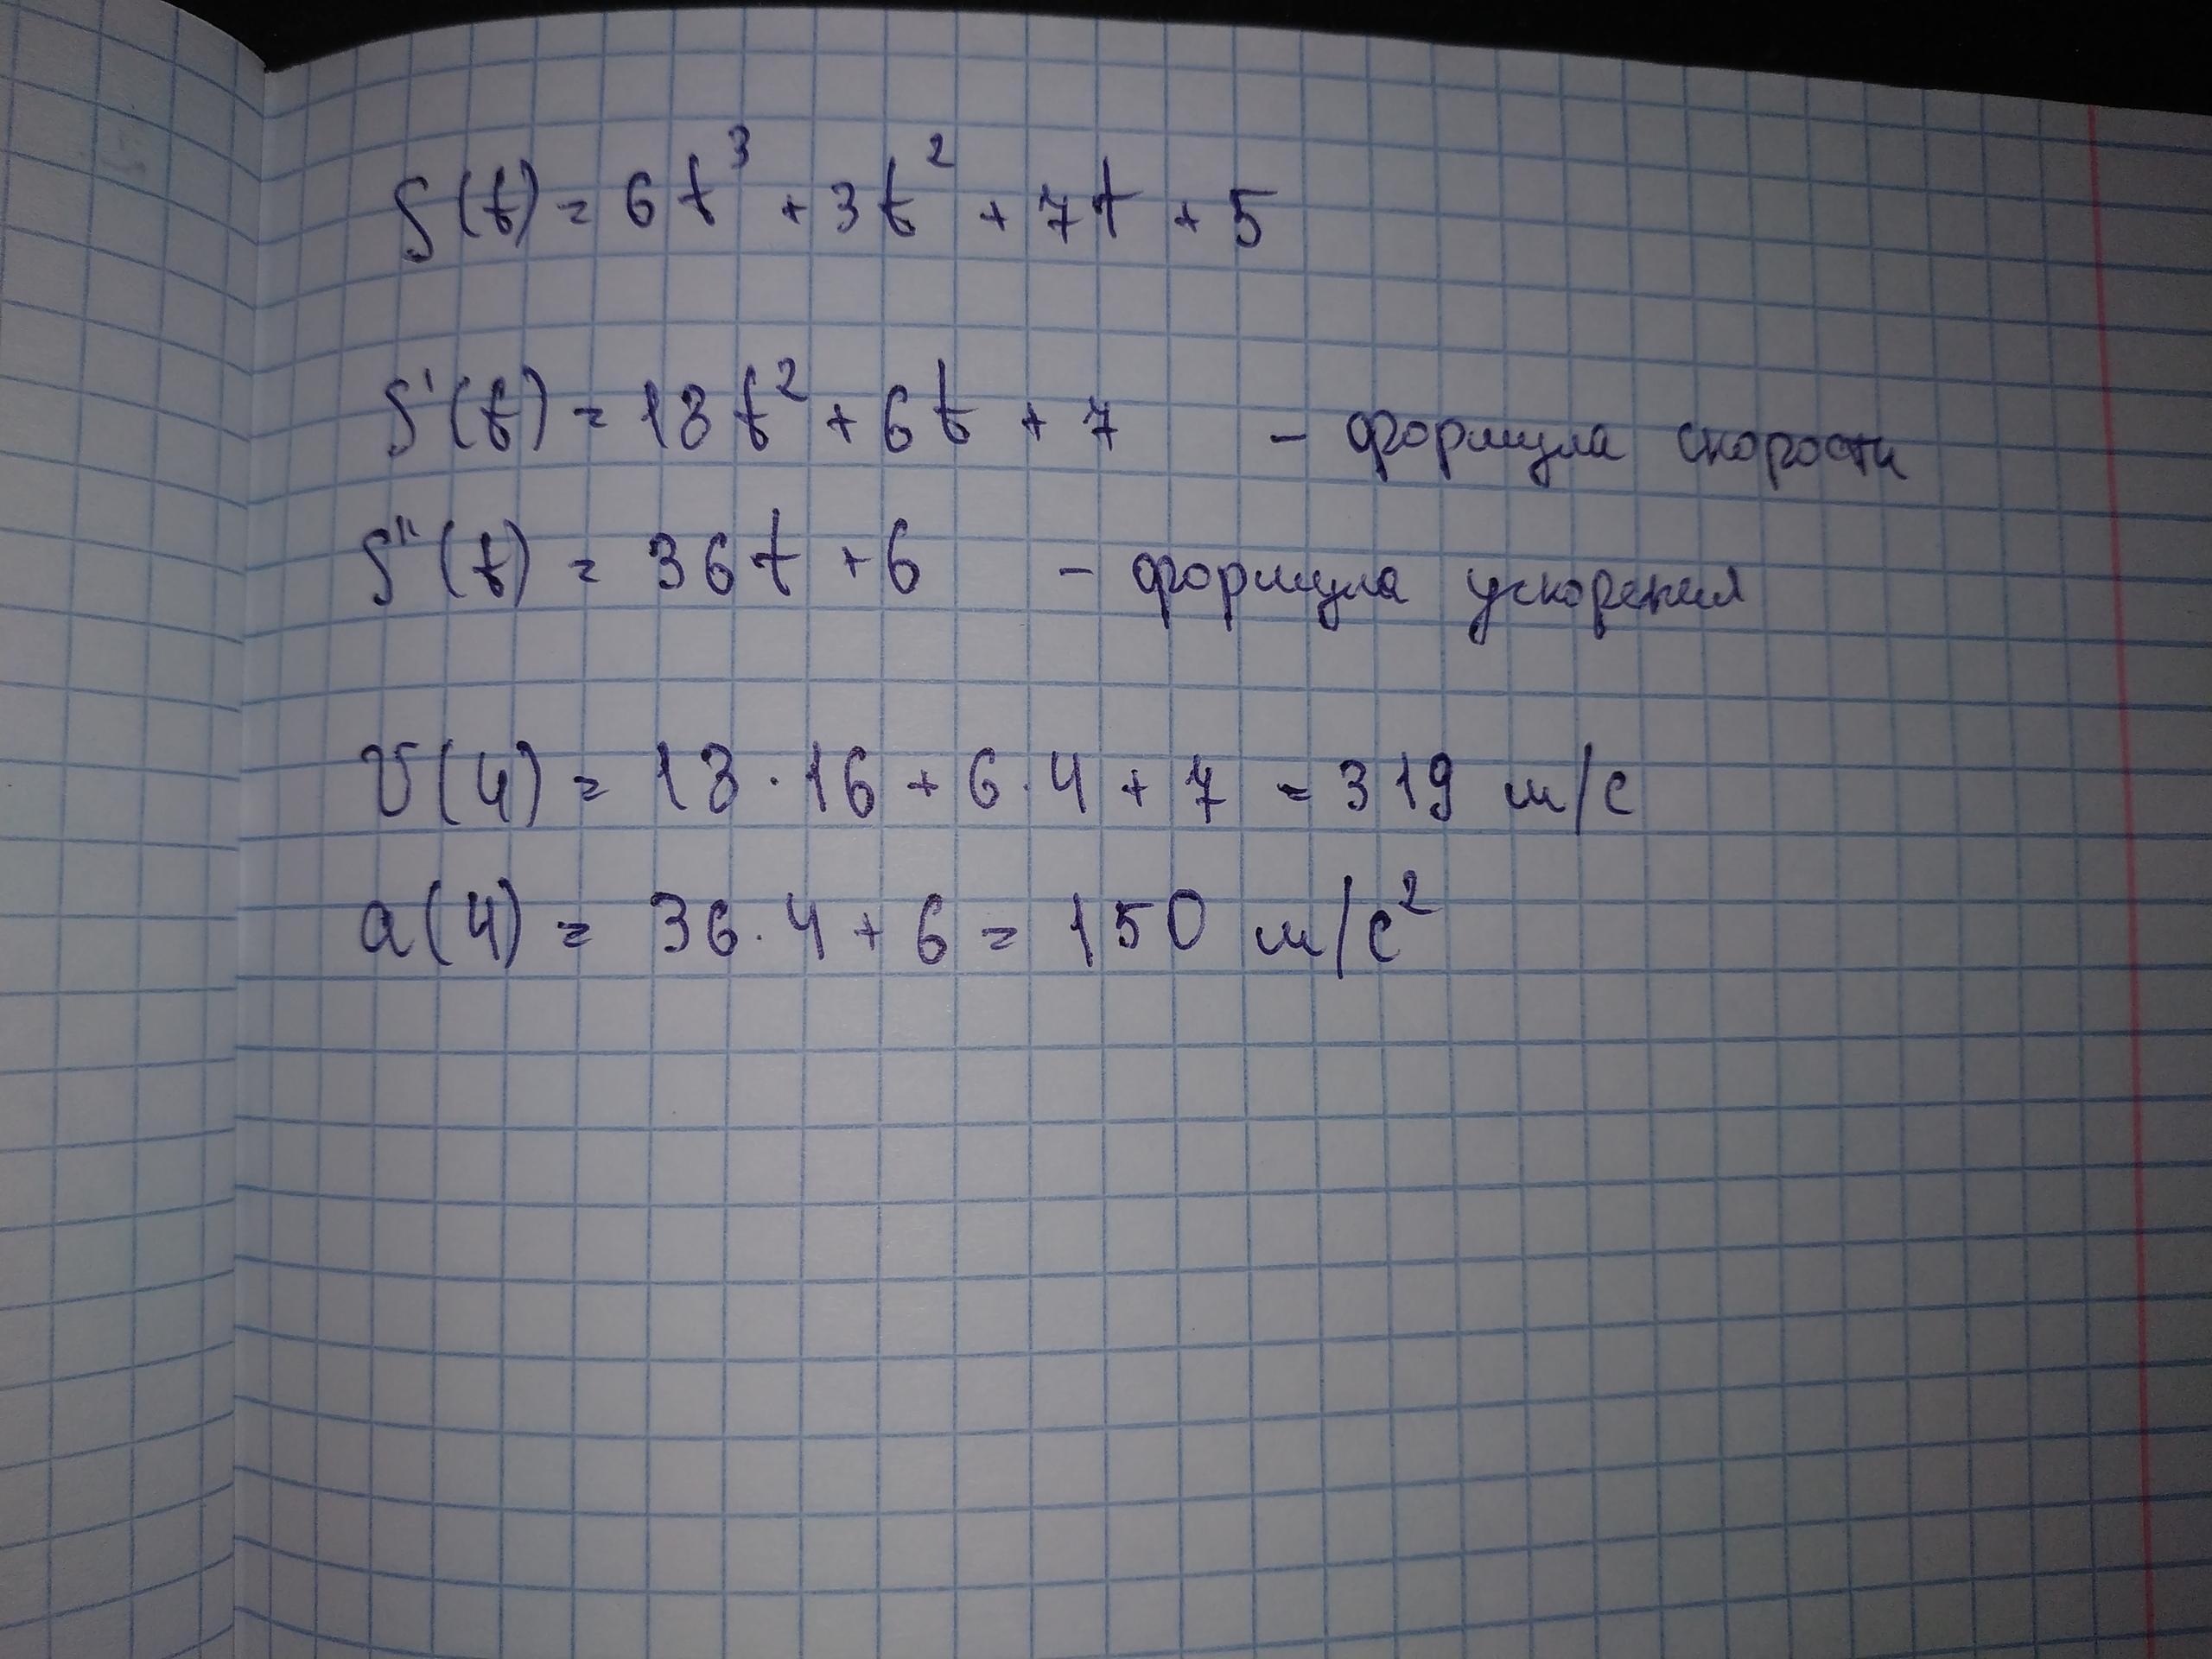 S(t) = 6t³ + 3t² + 7t + 5
S'(t) = 18t² + 6t + 7 - формула скорости
S''(t) = 36t + 6 - формула ускорения
υ(4) = 18 · 16 + 6 · 4 + 7 = 319 м/с
a(4) = 36 · 4 + 6 = 150 м/с²